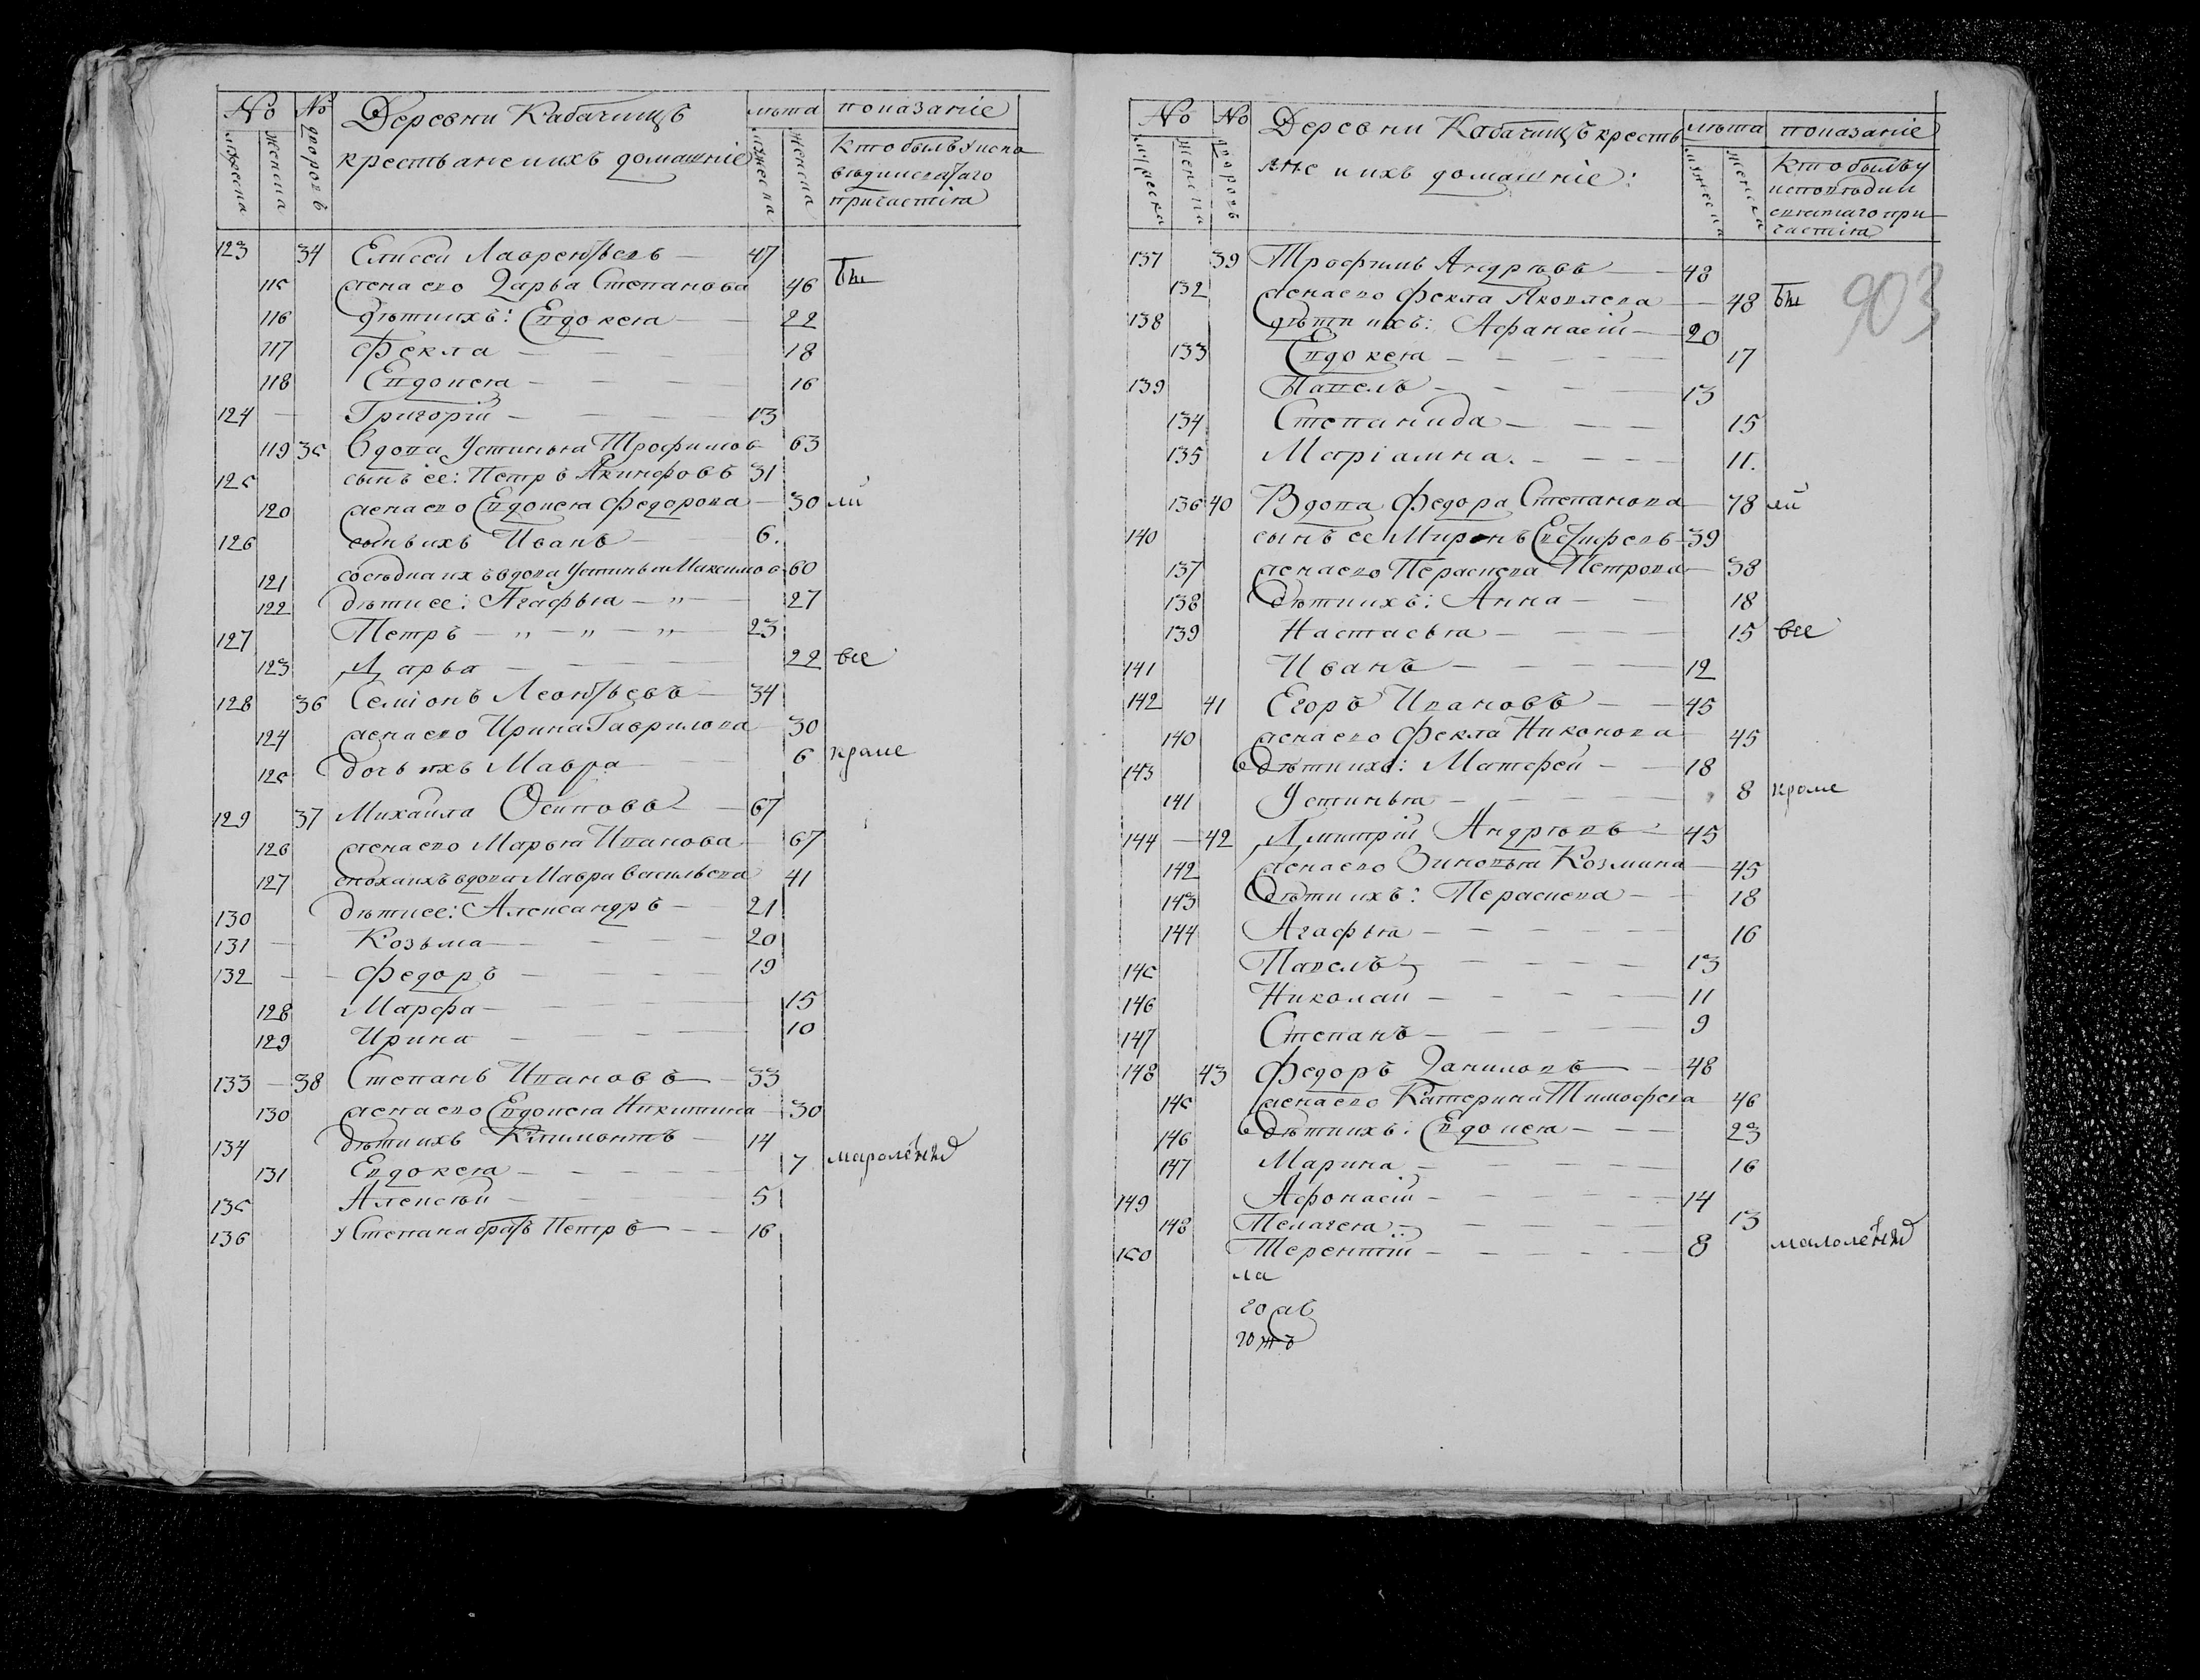 № № Деревни Кабачищъ лѣта показаніе
крестьяне ихъ домашніе
мужеска женска дворовъ мужеска женска
Кто былъ у испо
вѣди и святаго
причастія
123 34 Елисей Лаврентьевъ 47
115 жена его Дарья Степанова 46 бы
116 дѣти ихъ: Евдокея 22
117 Фекла 18
118 Евдокея 16
124 Григорій 13
119 35 Вдова Устинья Трофимов 63
125 сынъ ее: Петръ Акинфовъ 31
120 жена ево Евдокея Федорова 30 ли
126 сынъ ихъ Иванъ 6.
121 сосѣдка ихъ вдова Устинья Максимов 60
122 дѣти ее: Агафья 27
127 Петръ 23
123 Дарья 22 все
128 36 Семіонъ Леонтьевъ 34
124 жена ево Ирина Гаврилова 30
125 дочь ихъ Мавра 6 кроме
129 37 Михайла Осиповъ 67
126 жена ево Марья Иванова 67
127 сноха ихъ вдова Мавра Васильева 41
130 дѣти ее: Александръ 21
131 Козьма 20
132 Федоръ 19
128 Марфа 15
129 Ирина 10
133 38 Степанъ Ивановъ 33
130 жена ево Евдокея Никитина 30
134 дѣти ихъ Климонтъ 14
131 Евдокея 7
135 Алексѣй 5
136 у Степана братъ Петръ 16
№ № Деревни Кабачищъ кресть лѣта показаніе
яне и ихъ домашніе:
мужеска женска дворовъ мужеска женска
Кто былъ у
исповѣди и
святаго при
частія
903
137 39 Трофимъ Андрѣевъ 48
132 жена ево Фекла Яковлева 48 бы
138 дѣти ихъ: Афанасій 20
133 Евдокея 17
139 Павелъ 13
134 Степанида 15
135 Маріамна. 11.
136 40 Вдова Федора Степанова 78 ли
140 сынъ ее Миронъ 39
137 жена ево Пераскева Петрова 38
138 дѣти ихъ: Анна 18
139 Настасья 15 все
141 Иванъ 12
142 41 Егоръ Ивановъ 45
140 жена ево Фекла Никонова 45
143 дѣти ихъ: Матфей 18
141 Устинья 8 кроме
144 42 Дмитрій Андрѣевъ 45
142 жена ево Зиновья Козмина 45
143 дѣти ихъ: Пераскева 18
144 Агафья 16
145 Павелъ 13
146 Николай 11
147 Степанъ 9
148 43 Федоръ Даниловъ 48
145 жена ево Катерина Тимофева 46
146 дѣти ихъ: Евдокея 23
147 Марина 16
149 Афонасій 14
148 Пелагея 13
150 Терентій 8